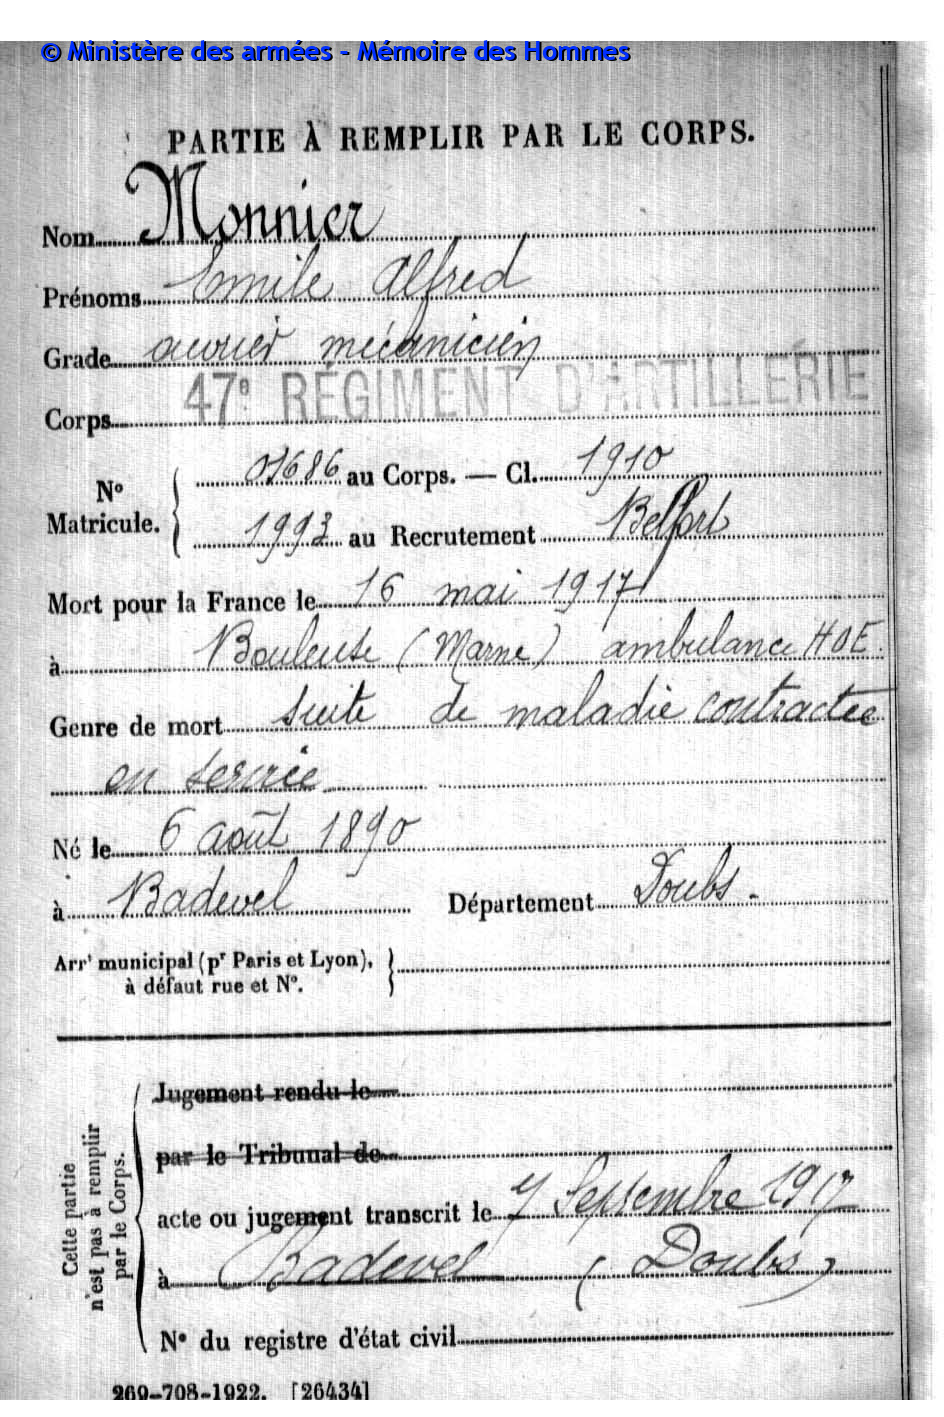 © Ministère des armées - Mémoire des Hommes
PARTIE À REMPLIR PAR LE CORPS.
Nom Monnier
Prénoms Emile Alfred
Grade ouvrier mécanicien
Corps 47e RÉGIMENT D'ARTILLERIE
No Matricule. { 01686 au Corps. — Cl. 1910
1993 au Recrutement Belfort
Mort pour la France le 16 mai 1917
à Bouleuse (Marne) ambulance HOE.
Genre de mort suite de maladie contractée
en service
Né le 6 août 1890
à Badevel Département Doubs -
Arrt municipal (pr Paris et Lyon), }
à défaut rue et No.
Cette partie
n'est pas à remplir
par le Corps.
Jugement rendu le
par le Tribunal de
acte ou jugement transcrit le 7 Septembre 1917
à Badevel (Doubs)
No du registre d'état civil
269-708-1922. [26434]